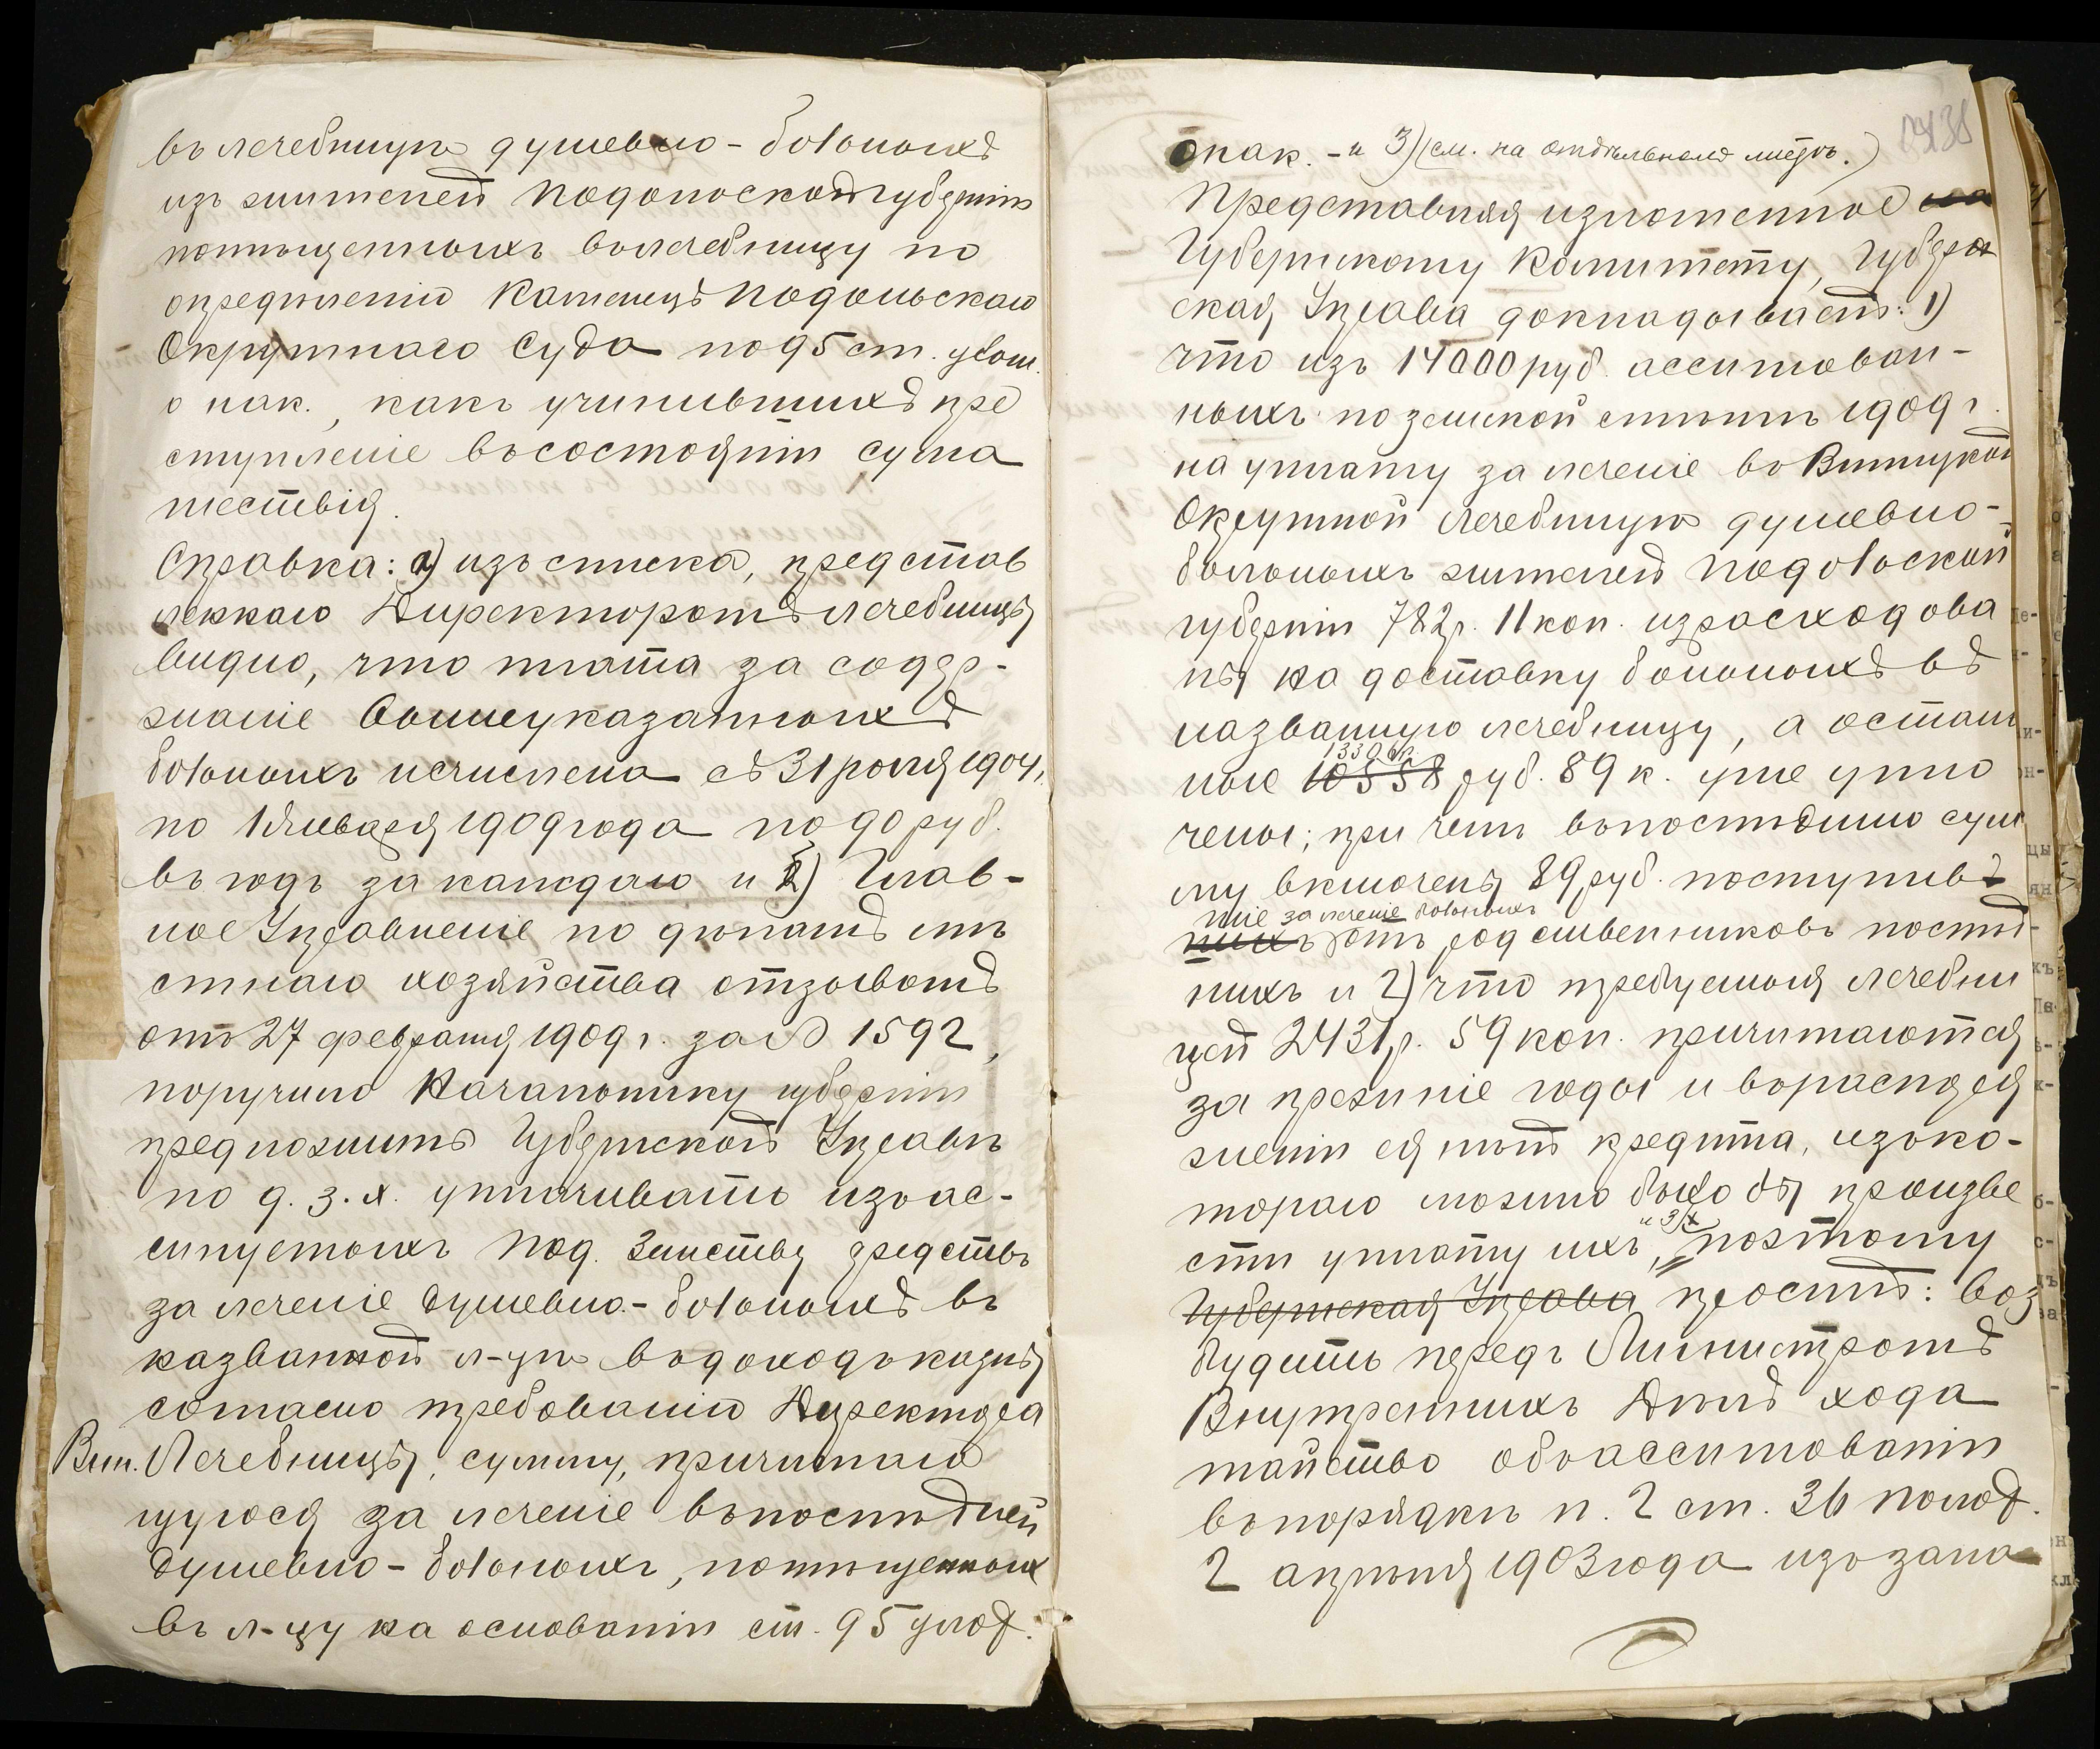 въ лечебницу душевно-больныхъ
изъ жителей Подольской губерніи
помѣщенныхъ въ лечебницу по
опредѣленію Каменецъ Подольскаго
Окружнаго Суда по 95 ст. улож.
о нак., какъ учинившихъ пре
ступленіе въ состояніи сума
шествія.
Справка: а) изъ списка, представ
леннаго Директоромъ лечебницы
видно, что плата за содер-
жаніе вышеуказанныхъ
больныхъ исчислена съ 31 іюля 1904 г.
по 1 января 1909 года по 90 руб.
въ годъ за каждаго и б) Глав-
ное Управленіе по дѣламъ мѣ
стнаго хозяйства отзывомъ
отъ 27 февраля 1909 г. за № 1592,
поручило Начальнику губерніи
предложить Губернской Управѣ
по д. з. х. уплачивать изъ ас-
сигнуемыхъ Под. Земству средствъ
за леченіе душевно-больныхъ въ
названной л-цѣ въ доходъ казны
согласно требованію Директора
Вин. Лечебницы, сумму, причитаю
щуюся за леченіе въ послѣдней
душевно-больныхъ, помѣщенныхъ
въ л-цу на основаніи ст. 95 улож.
о нак. - и 3) (см. на отдѣльномъ листѣ.)
Представляя изложенное на
Губернскому Комитету, Губерн
ская Управа докладываетъ: 1)
что изъ 14000 руб. ассигнован-
ныхъ по земской смѣтѣ 1909 г.
на уплату за леченіе въ Винницкой
Окружной лечебницѣ душевно-
больныхъ жителей Подольской
губерніи 782 р. 11 коп. израсходова
ны на доставку больныхъ въ
названную лечебницу, а осталь
1330 6р.
ные 10558 руб. 89 к. уже упла
чены; при чемъ въ послѣднюю сум
му включены 89 руб. поступив
шіе за леченіе больныхъ
шихъ отъ родственниковъ послѣд-
нихъ и 2) что требуемыя лечебни
цей 2431 р. 59 коп. причитаются
за прежніе годы и въ распоря
женіи ея нѣтъ кредита, изъ ко-
тораго можно было бы произве
и 3/х
сти уплату ихъ, поэтому
Губернская Управа проситъ: воз
будить передъ Министромъ
Внутреннихъ Дѣлъ хода
тайство объ ассигнованіи
въ порядкѣ п. 2 ст. 36 полож.
2 апрѣля 1903 года изъ запа